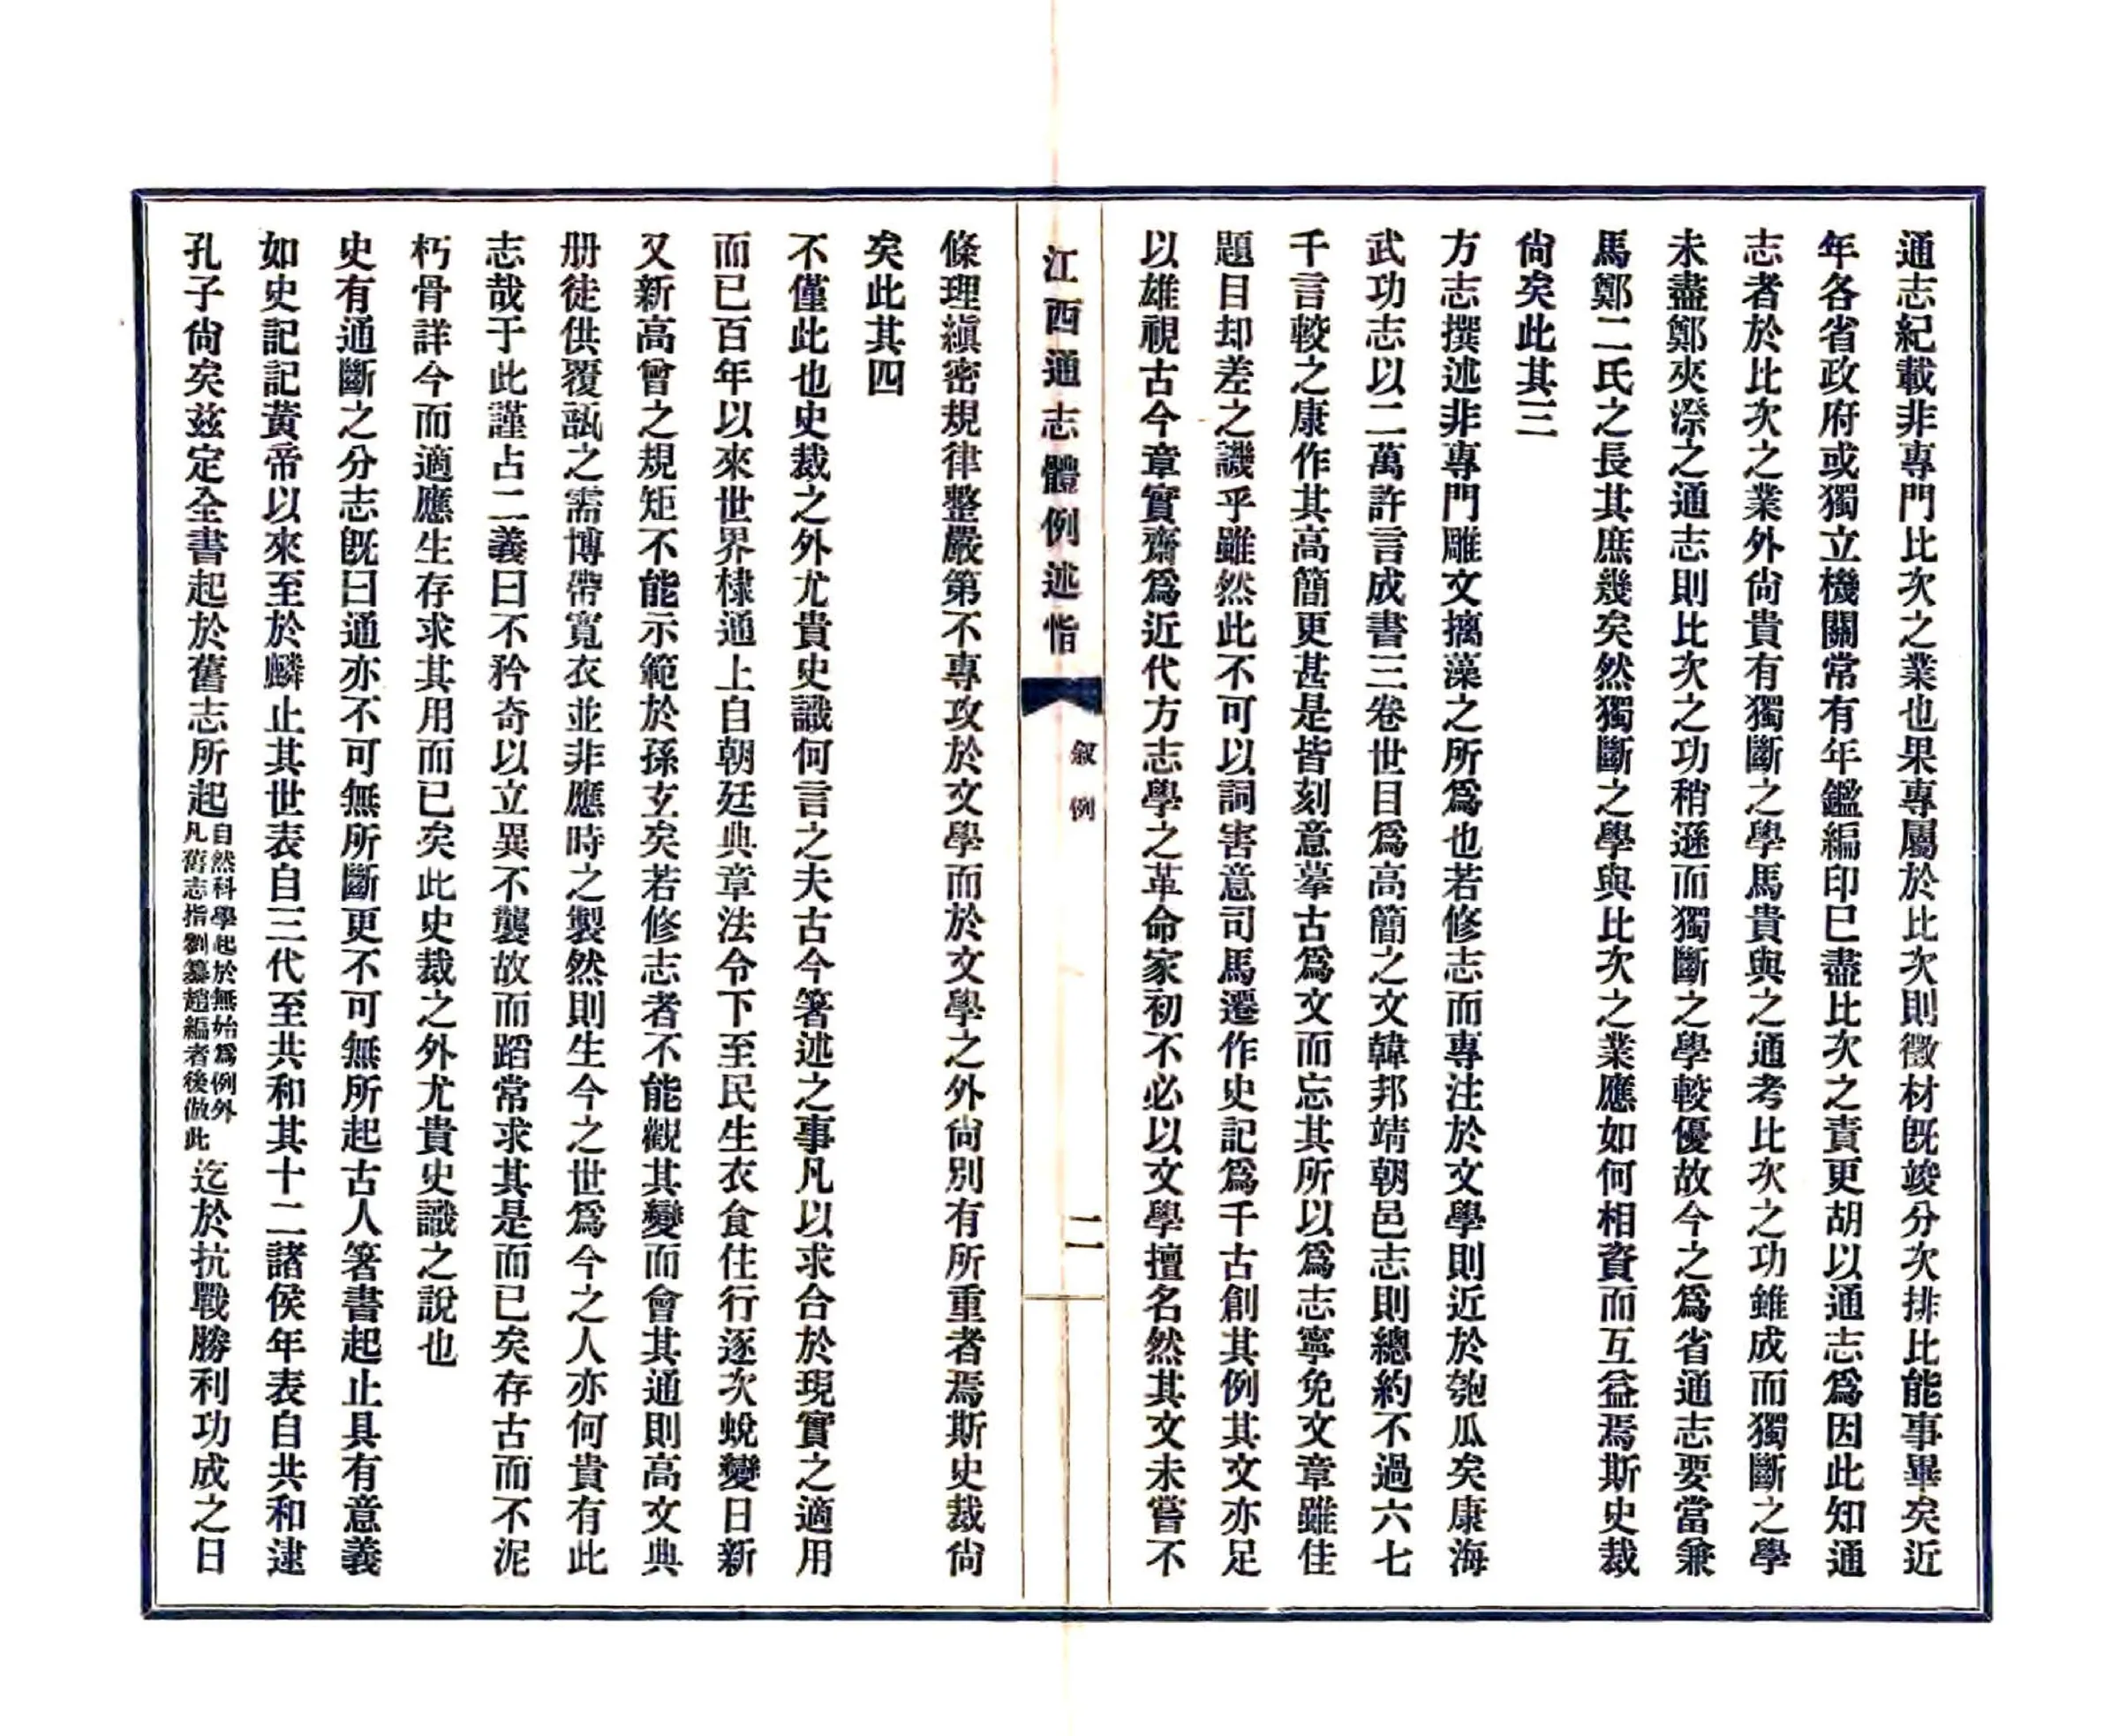 通志紀載非專門比次之業也果專屬於比次則徵材既竣分次排比能事畢矣近
年各省政府或獨立機關常有年鑑編印已盡比次之責更胡以通志爲因此知通
志者於比次之業外尙貴有獨斷之學馬貴與之通考比次之功雖成而獨斷之學
未盡鄭夾漈之通志則比次之功稍遜而獨斷之學較優故今之爲省通志要當兼
馬鄭二氏之長其庶幾矣然獨斷之學與比次之業應如何相資而互益焉斯史裁
尙矣此其三
方志撰述非專門雕文摛藻之所爲也若修志而專注於文學則近於匏瓜矣康海
武功志以二萬許言成書三卷世目爲高簡之文韓邦靖朝邑志則總約不過六七
千言較之康作其高簡更甚是皆刻意摹古爲文而忘其所以爲志寧免文章雖佳
題目却差之譏乎雖然此不可以詞害意司馬遷作史記爲千古創其例其文亦足
以雄視古今章實齋爲近代方志學之革命家初不必以文學擅名然其文未嘗不
江西通志體例述恉
敘例
二
條理縝密規律整嚴第不專攻於文學而於文學之外尙別有所重者焉斯史裁尙
矣此其四
不僅此也史裁之外尤貴史識何言之夫古今箸述之事凡以求合於現實之適用
而已百年以來世界棣通上自朝廷典章法令下至民生衣食住行逐次蛻變日新
又新高曾之規矩不能示範於孫玄矣若修志者不能觀其變而會其通則高文典
册徒供覆瓿之需博帶寬衣並非應時之製然則生今之世爲今之人亦何貴有此
志哉于此謹占二義曰不矜奇以立異不襲故而蹈常求其是而已矣存古而不泥
朽骨詳今而適應生存求其用而已矣此史裁之外尤貴史識之說也
史有通斷之分志既曰通亦不可無所斷更不可無所起古人箸書起止具有意義
如史記記黃帝以來至於麟止其世表自三代至共和其十二諸侯年表自共和逮
孔子尙矣茲定全書起於舊志所起自然科學起於無始爲例外凡舊志指劉纂趙編者後倣此迄於抗戰勝利功成之日